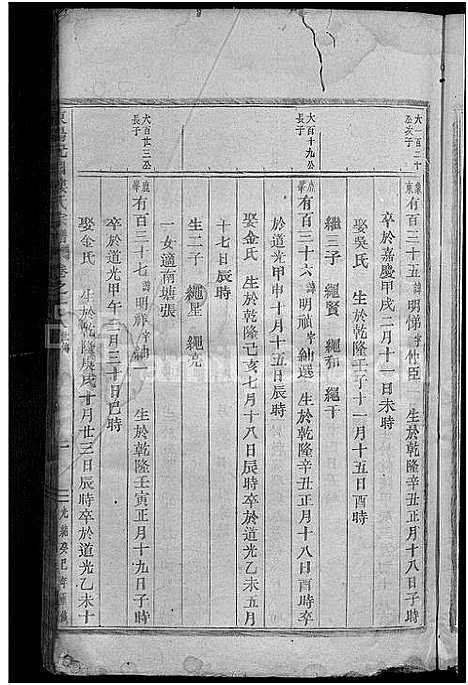 大一百二十
公次子
有百三十五 諱明悌字仕臣 生於乾隆辛丑正月十八日子時
卒於嘉慶甲戌二月十一日未時
娶吳氏 生於乾隆壬子十一月十五日酉時
繼三子 繩賢 繩和 繩干
大百十九公
長子
有百三十六 諱明禎字 選 生於乾隆辛丑正月十八日酉時卒
於道光甲申十月十五日辰時
娶金氏 生於乾隆己亥七月十八日辰時卒於道光乙未五月
十七日辰時
生二子 繩星 繩亮
一女適南塘張
大百廿三公
長子
有百三十七 諱明祥字 一 生於乾隆壬寅正月十九日子時
卒於道光甲午三月三十日巳時
娶金氏 生於乾隆庚戌十月廿三日辰時卒於道光乙未十
氏宗譜 卷之
光緒癸巳年重修